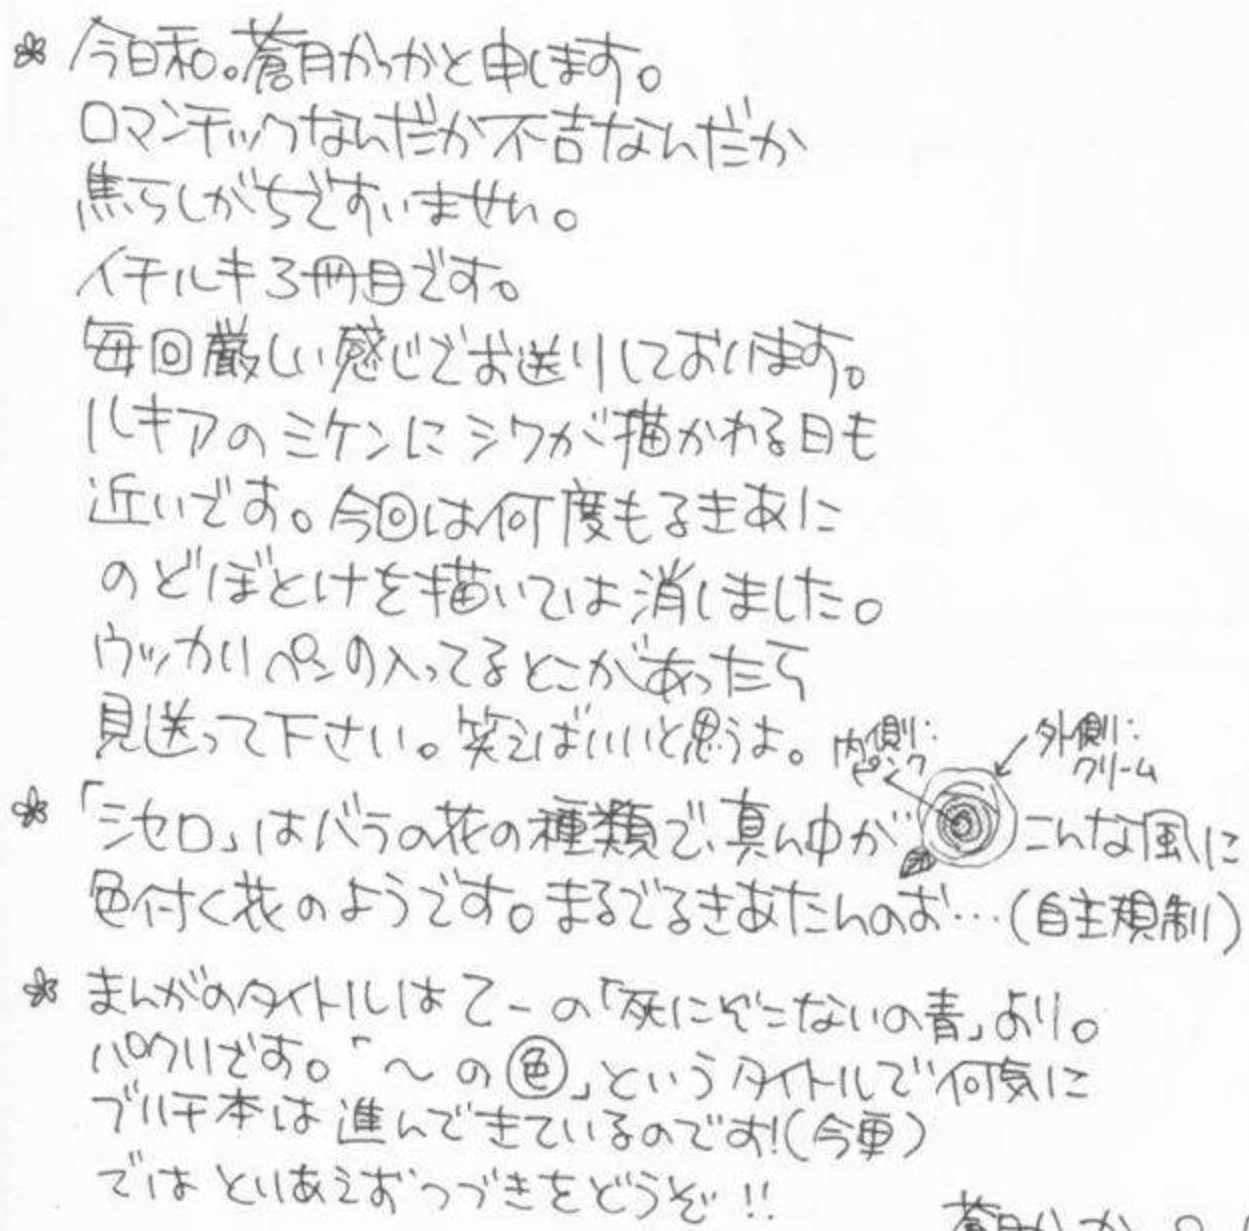 今日和。蒼月かっかと申します。
ロマンチックなんだか不吉なんだか
焦らしがちですいません。
イチルキ3冊目です。
毎回厳しい感じでお送りしております。
ルキアのミケンにシワが描かれる日も
近いです。今回は何度もるきあに
のどぼとけを描いては消しました。
ウッカリペンの入ってるとこがあったら
見送って下さい。笑えばいいと思うよ。
内側:
ピンク
外側:
クリーム
「シセロ」はバラの花の種類で、真ん中が こんな風に
色付く花のようです。まるでるきあたんのお…(自主規制)
まんがのタイトルは乙一の「死にぞこないの青」より。
パクリです。「〜の色」というタイトルで何気に
ブリチ本は進んできているのです!(今更)
ではとりあえずつづきをどうぞ!!
蒼月かっか